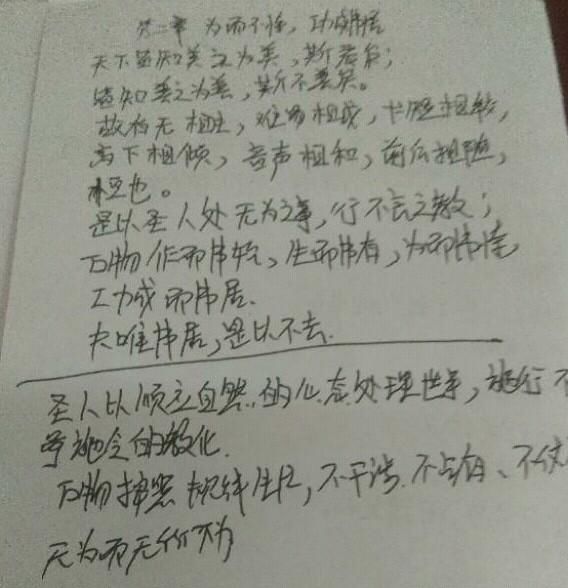 第二章 为而不恃，功弗居
天下皆知美之为美，斯恶矣；
皆知善之为善，斯不善矣。
故有无相生，难易相成，长短相较，
高下相倾，音声相和，前后相随，
恒也。
是以圣人处无为之事，行不言之教；
万物作而弗始，生而弗有，为而弗恃，
功成而弗居。
夫唯弗居，是以不去。
圣人以顺应自然的心态处理世事，施行不
号施令的教化.
万物按照规律生长，不干涉、不占有、不仗
无为而无所不为